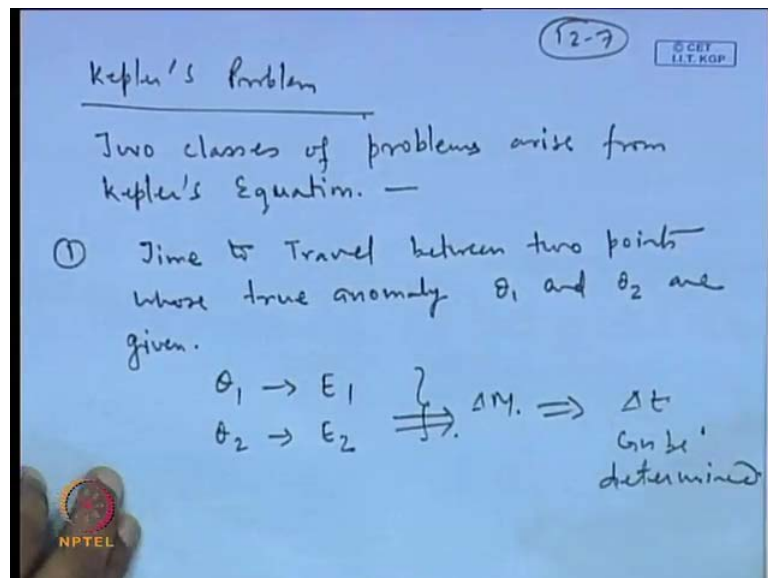 12-7
© CET
I.I.T. KGP
Kepler's Problem
Two classes of problems arise from
Kepler's Equation. —
① Time to Travel between two points
whose true anomaly θ₁ and θ₂ are
given.
θ₁ → E₁
θ₂ → E₂ } ⇒ ΔM. ⇒ Δt
Can be
determined
NPTEL